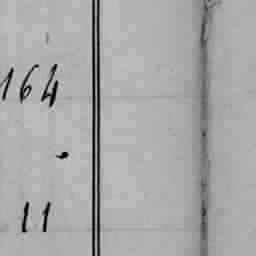 164
11